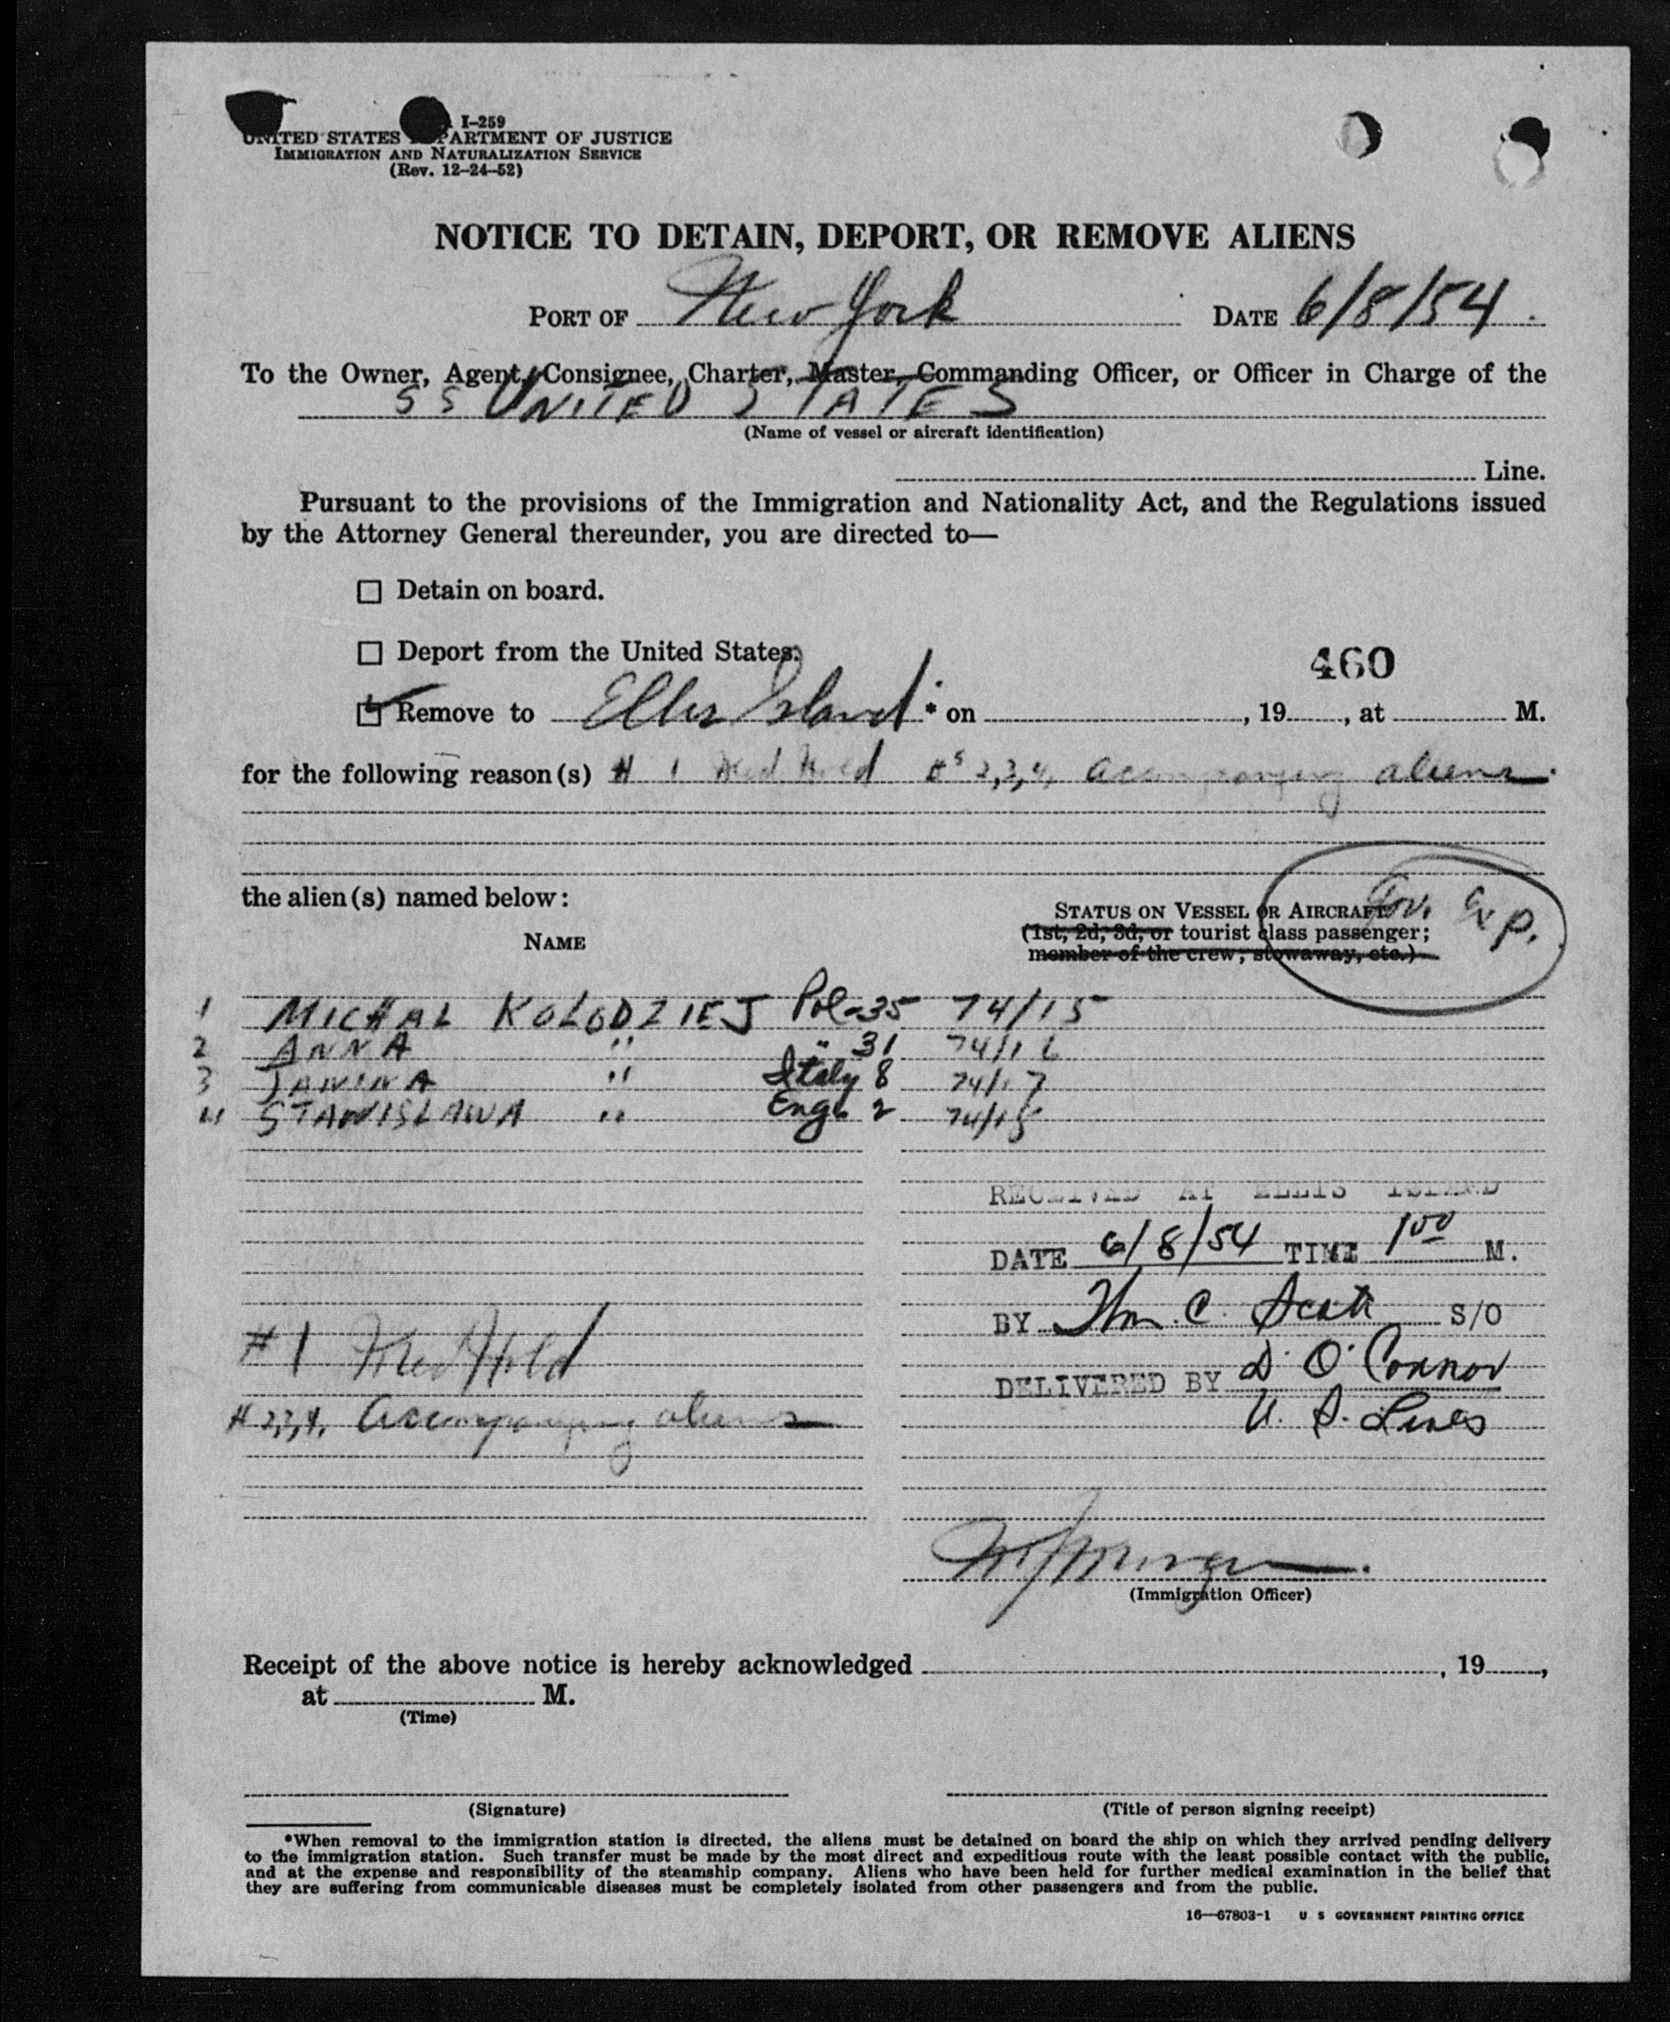 I-259
UNITED STATES DEPARTMENT OF JUSTICE
IMMIGRATION AND NATURALIZATION SERVICE
(Rev. 12-24-52)
NOTICE TO DETAIN, DEPORT, OR REMOVE ALIENS
PORT OF New York DATE 6/8/54
To the Owner, Agent, Consignee, Charter, Master, Commanding Officer, or Officer in Charge of the
SS UNITED STATES
(Name of vessel or aircraft identification)
Line.
Pursuant to the provisions of the Immigration and Nationality Act, and the Regulations issued
by the Attorney General thereunder, you are directed to—
Detain on board.
Deport from the United States.
460
Remove to Ellis Island * on , 19 , at M.
for the following reason(s) # 1 Med Hold #s 2,3,4, Accompanying aliens.
the alien(s) named below:
Gov. Exp.
STATUS ON VESSEL OR AIRCRAFT
(1st, 2d, 3d, or tourist class passenger;
member of the crew; stowaway, etc.)
NAME
1 MICHAL KOLODZIEJ Pol-35 74/15
2 ANNA " " 31 74/16
3 JANINA " Italy 8 74/17
4 STANISLAWA " Eng. 2 74/18
RECEIVED AT ELLIS ISLAND
DATE 6/8/54 TIME 1 00 M.
BY Wm. C. Scott S/O
# 1 Med Hold
DELIVERED BY D. O'Connor
# 2,3,4, Accompanying aliens
U. S. Lines
(Immigration Officer)
Receipt of the above notice is hereby acknowledged , 19 ,
at M.
(Time)
(Signature) (Title of person signing receipt)
*When removal to the immigration station is directed, the aliens must be detained on board the ship on which they arrived pending delivery
to the immigration station. Such transfer must be made by the most direct and expeditious route with the least possible contact with the public,
and at the expense and responsibility of the steamship company. Aliens who have been held for further medical examination in the belief that
they are suffering from communicable diseases must be completely isolated from other passengers and from the public.
16—67803-1 U S GOVERNMENT PRINTING OFFICE